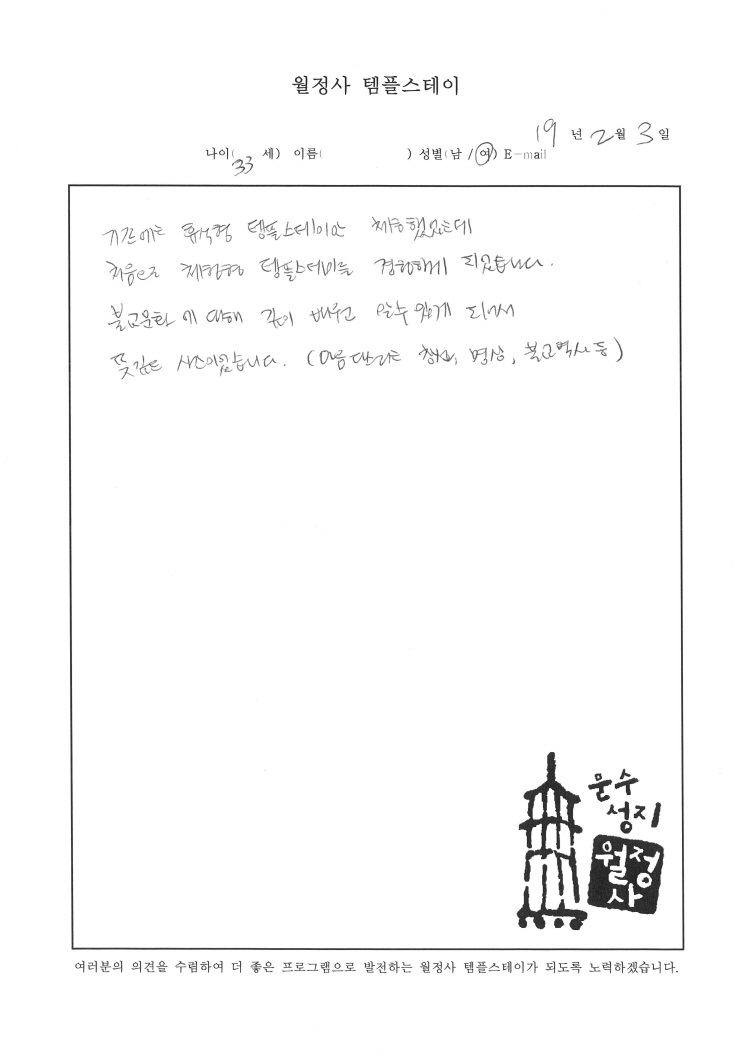 월정사 템플스테이
19 년 2 월 3 일
나이( 33 세) 이름( ) 성별(남 / 여) E-mail
기존에는 휴식형 템플스테이만 체험했었는데
처음으로 체험형 템플스테이를 경험하게 되었습니다.
불교문화에 대해 깊이 배우고 알수 있게 되어서
뜻깊은 시간이었습니다. (마음 만다라 명상, 불교역사 등)
문수
성지
월정
사
여러분의 의견을 수렴하여 더 좋은 프로그램으로 발전하는 월정사 템플스테이가 되도록 노력하겠습니다.